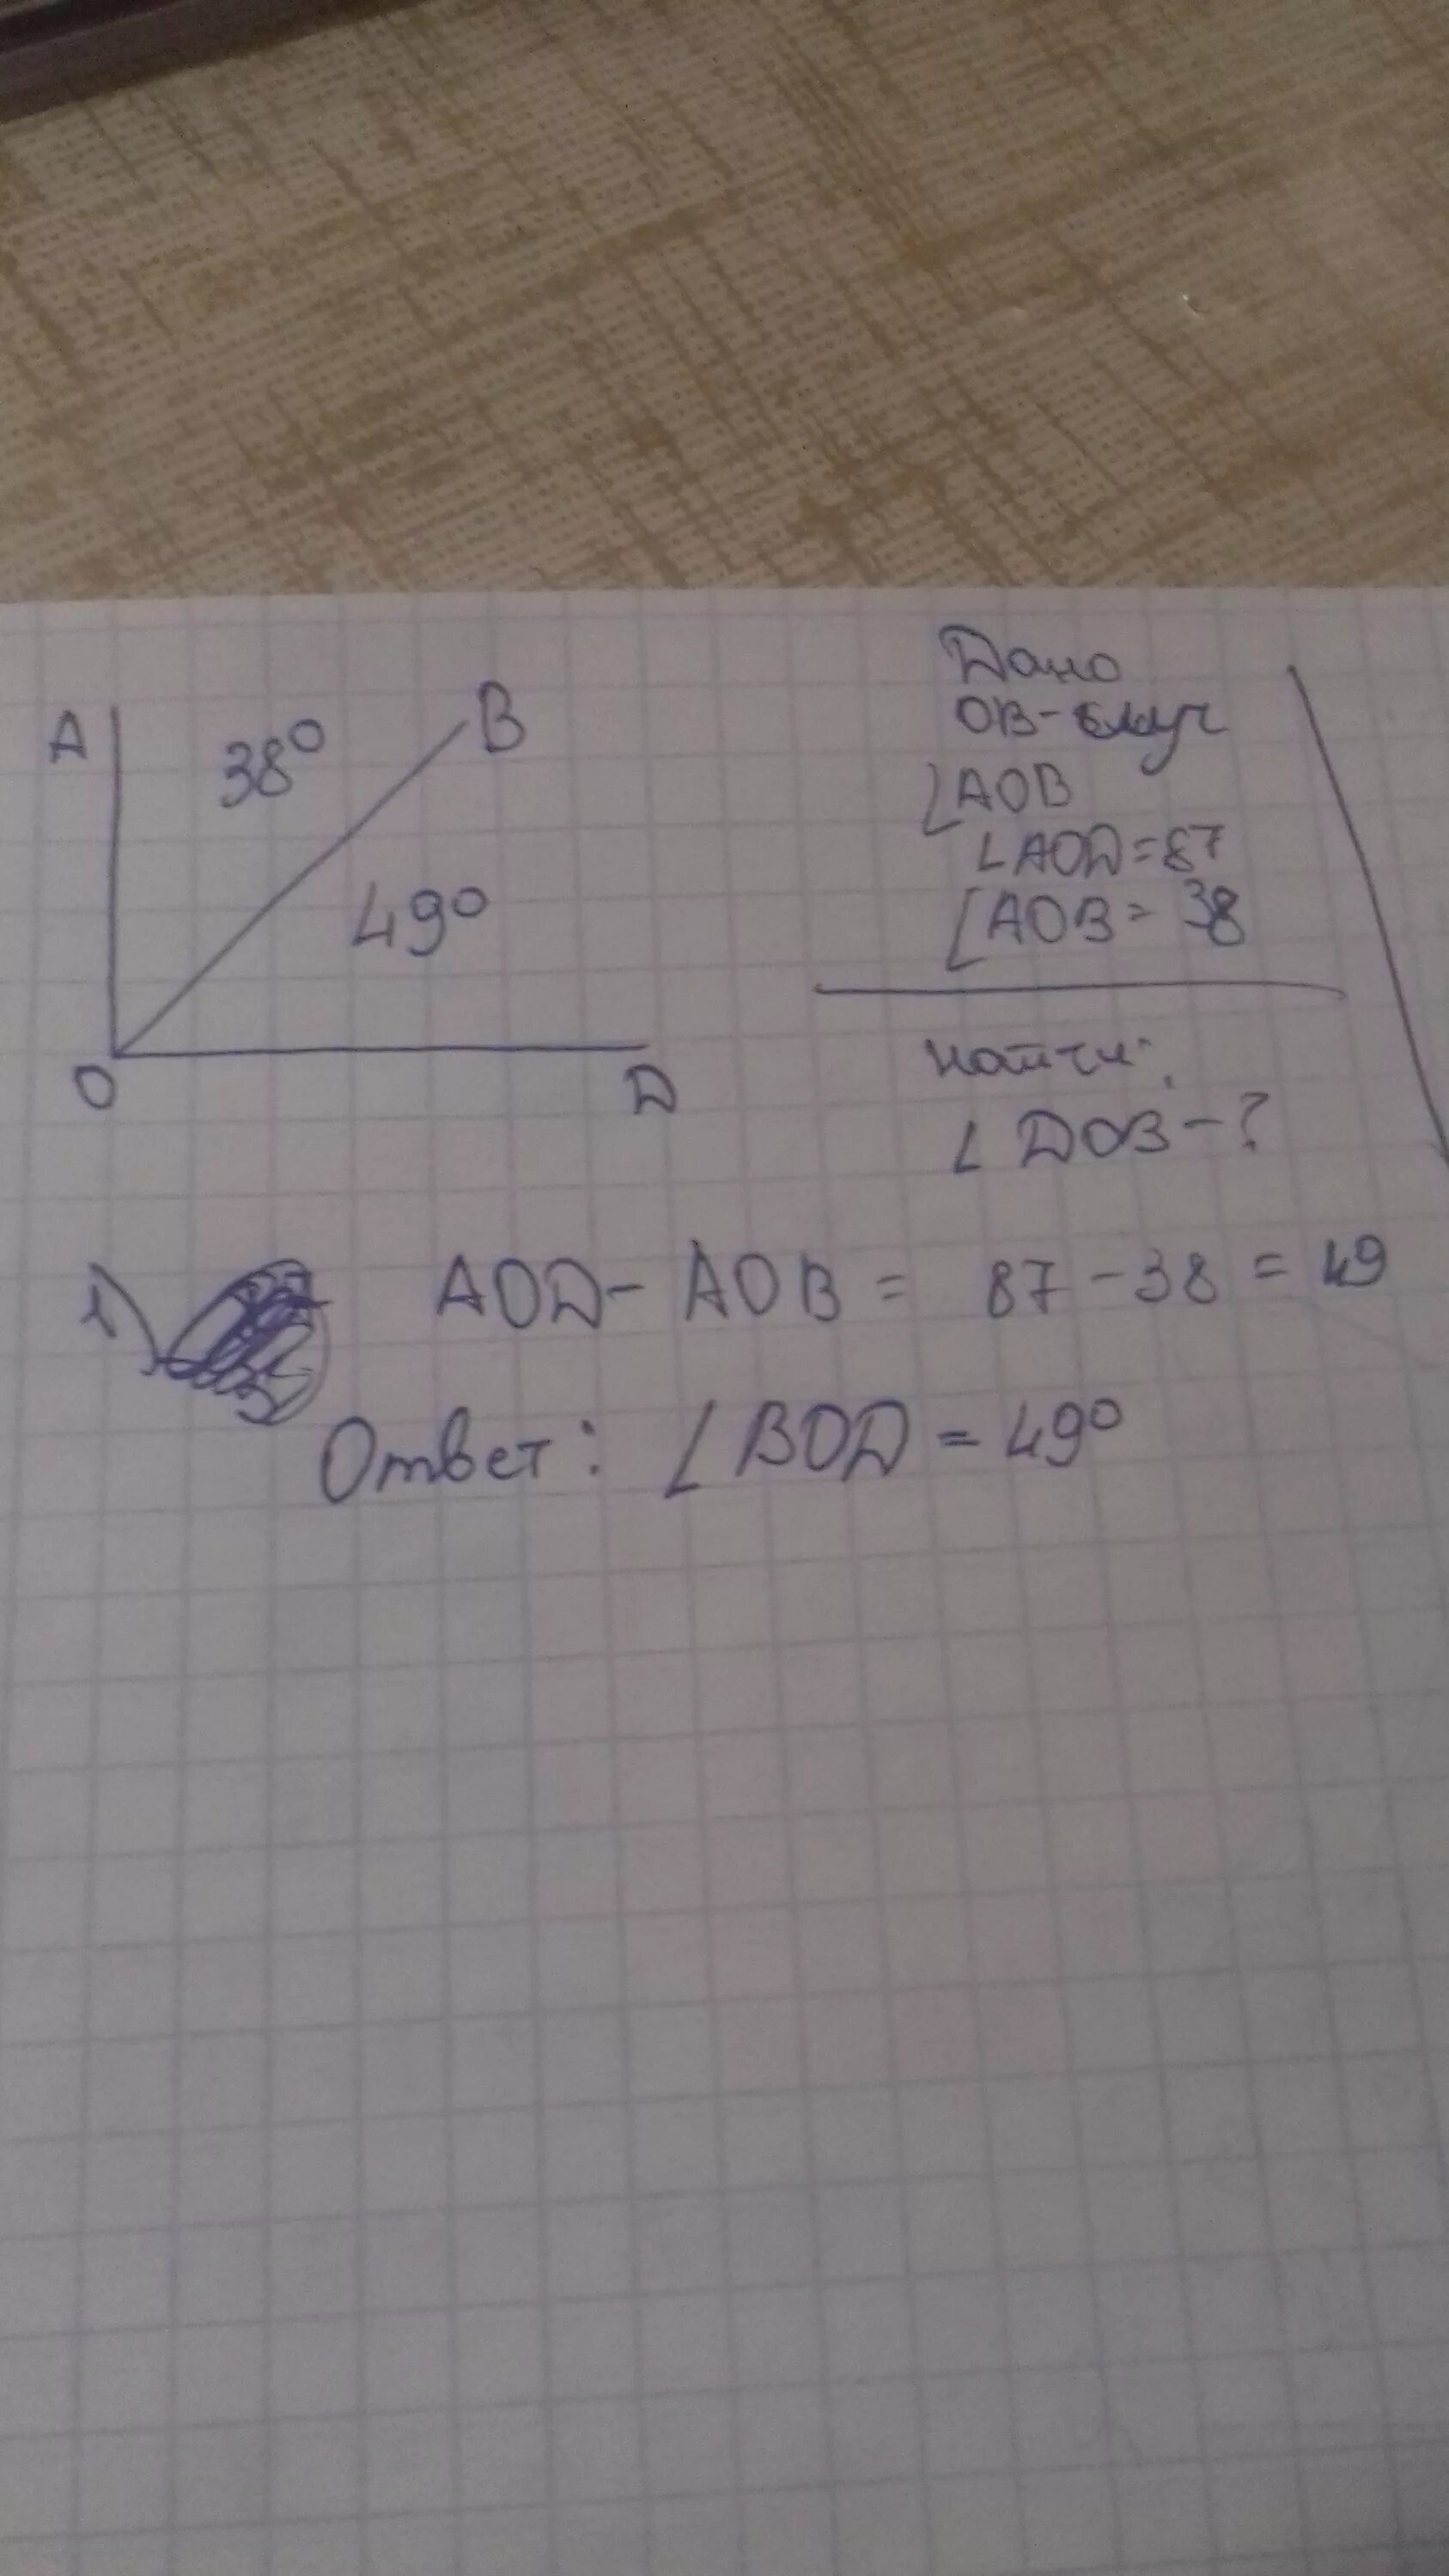 A
38°
B
49°
O
D
Дано
OB - луч
∠AOB
∠AOD = 87
∠AOB = 38
найти:
∠DOB - ?
1) AOD - AOB = 87 - 38 = 49
Ответ: ∠BOD = 49°